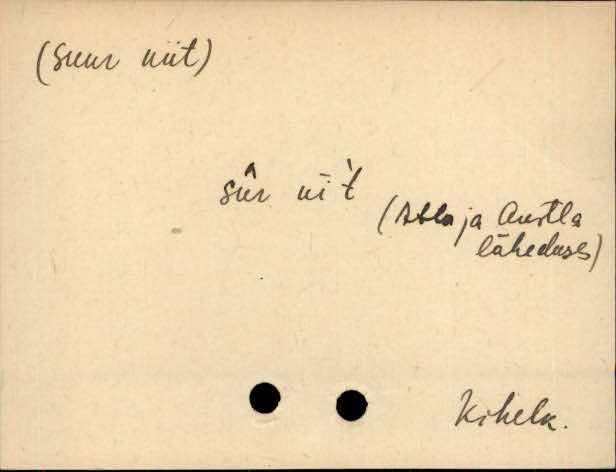 (Suur niit)
sûr nī̀t
(Abla ja Austla
läheduses)
Kihelk.